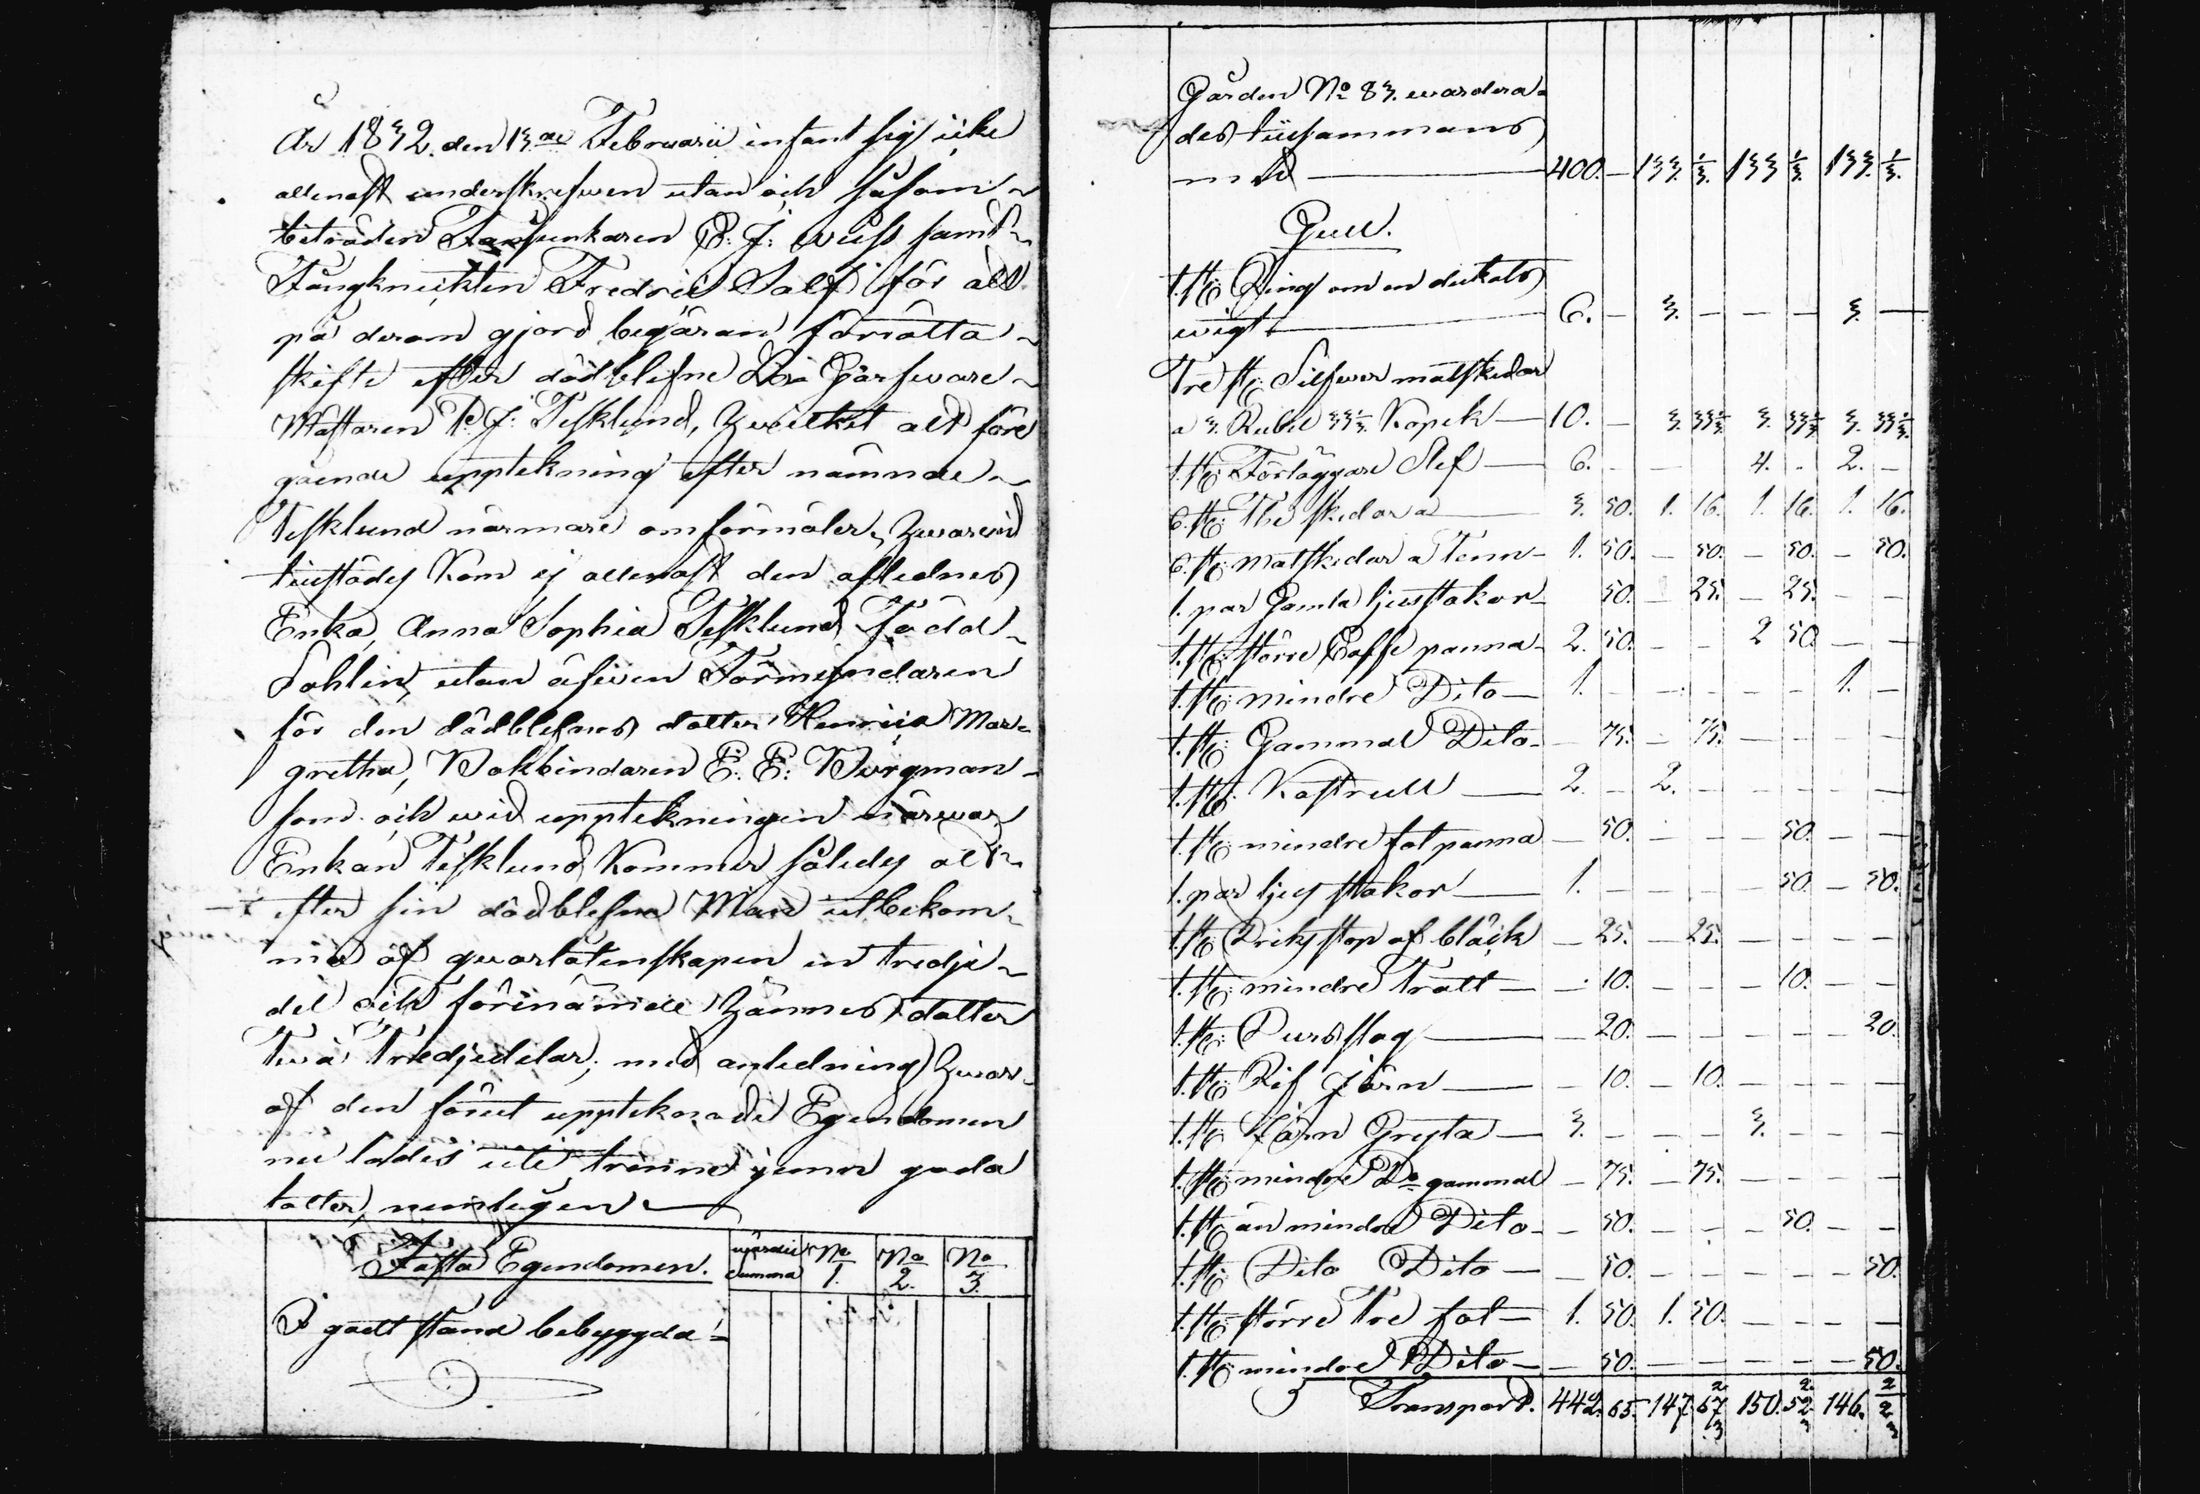 År 1832. den 13de Februarii infant sig icke
allenast underskrefwen utan och såsom
biträden Tarfsenkaren C: J: Weiss samt
Stångknekten Fredric Salf för att
på derom gjord begäran förrätta
skifte efter dödblefne Garfware
Mästaren P: J: Tesklund, hwilket alt före
gående upptekning efter nämnde
Tesklund närmare omförmäler, hwarwid
tillstädes kom ej allenast den aflednes
Enka, Anna Sophia Tesklund Född
Sohlin, utan äfwen Förmyndaren
för den dödblefnes dotter Henrica Mar-
gretha, Bokbindaren E: E: Bergman
som ock wid upptekningen närwar
Enkan Tesklund kommer således att
efter sin dödblefne Man utbekom-
ma af qwarlåtenskapen en tredje
del och förenämde hännes dotter
Twå Tredjedelar; med anledning hwar-
af den förut upptecknade Egendomen
nu lades uti trenne jemn goda
lotter, nemligen
Fasta Egendomen. wärdie summa No 1. No 2. No 3.
I godt stånd bebyggda
Gården No 83. wardera-
des tillsammans
med 400. — 133. 1/3. 133 1/3. 133. 1/3.
Gull.
1. st: Ring om en dukats
wigt 6. — 3. — — — 3. —
Tre st: Silfwer matskedar
a 3. Rubel 33 1/3. Kopek — 10. — 3. 33 1/3. 3. 33 1/3 3. 33 1/3.
1. st: Förläggare Slef — 6. — — 4. . 2. —
6. st: The skedar a 3. 50. 1. 16. 1. 16. 1. 16.
6. st: matskedar a Tenn — 1. 50. — 50. — 50. — 50.
1. par Gamla ljusstakar — 50. — 25. — 25. — —
1. st: större Caffe panna — 2. 50. — — 2 50. — —
1. st: mindre Dito — 1. — — — — 1. —
1. st: Gammal Dito — 75. — 75. — — — —
1. st: Kastrull — 2. — 2. — — — — —
1. st: mindre fot panna — 50. — — — 50. — —
1. par ljus stakar — 1. — — — — 50. — 50.
1. st: Driksstop af bläck — 25. — 25. — — — —
1. st: mindre Tratt — 10. — — — 10. — —
1. st: Durslag — 20. — — — — — 20.
1. st: Rif Järn — 10. — 10. — — — —
1. st: Järn Gryta — 3. — — — 3. — — —
1. st: mindre Do gammal — 75. — 75. — — — —
1. st: än mindre Dito — 50. — — — 50. — —
1. st: Dito Dito — 50. — — — — — 50.
1. st: större Tre fat — 1. 50. 1. 50. — — — —
1. st: mindre Dito — 50. — — — — — 50.
Transport. 442. 65. 147. 67 2/3 150. 52 2/3 146. 2 2/3